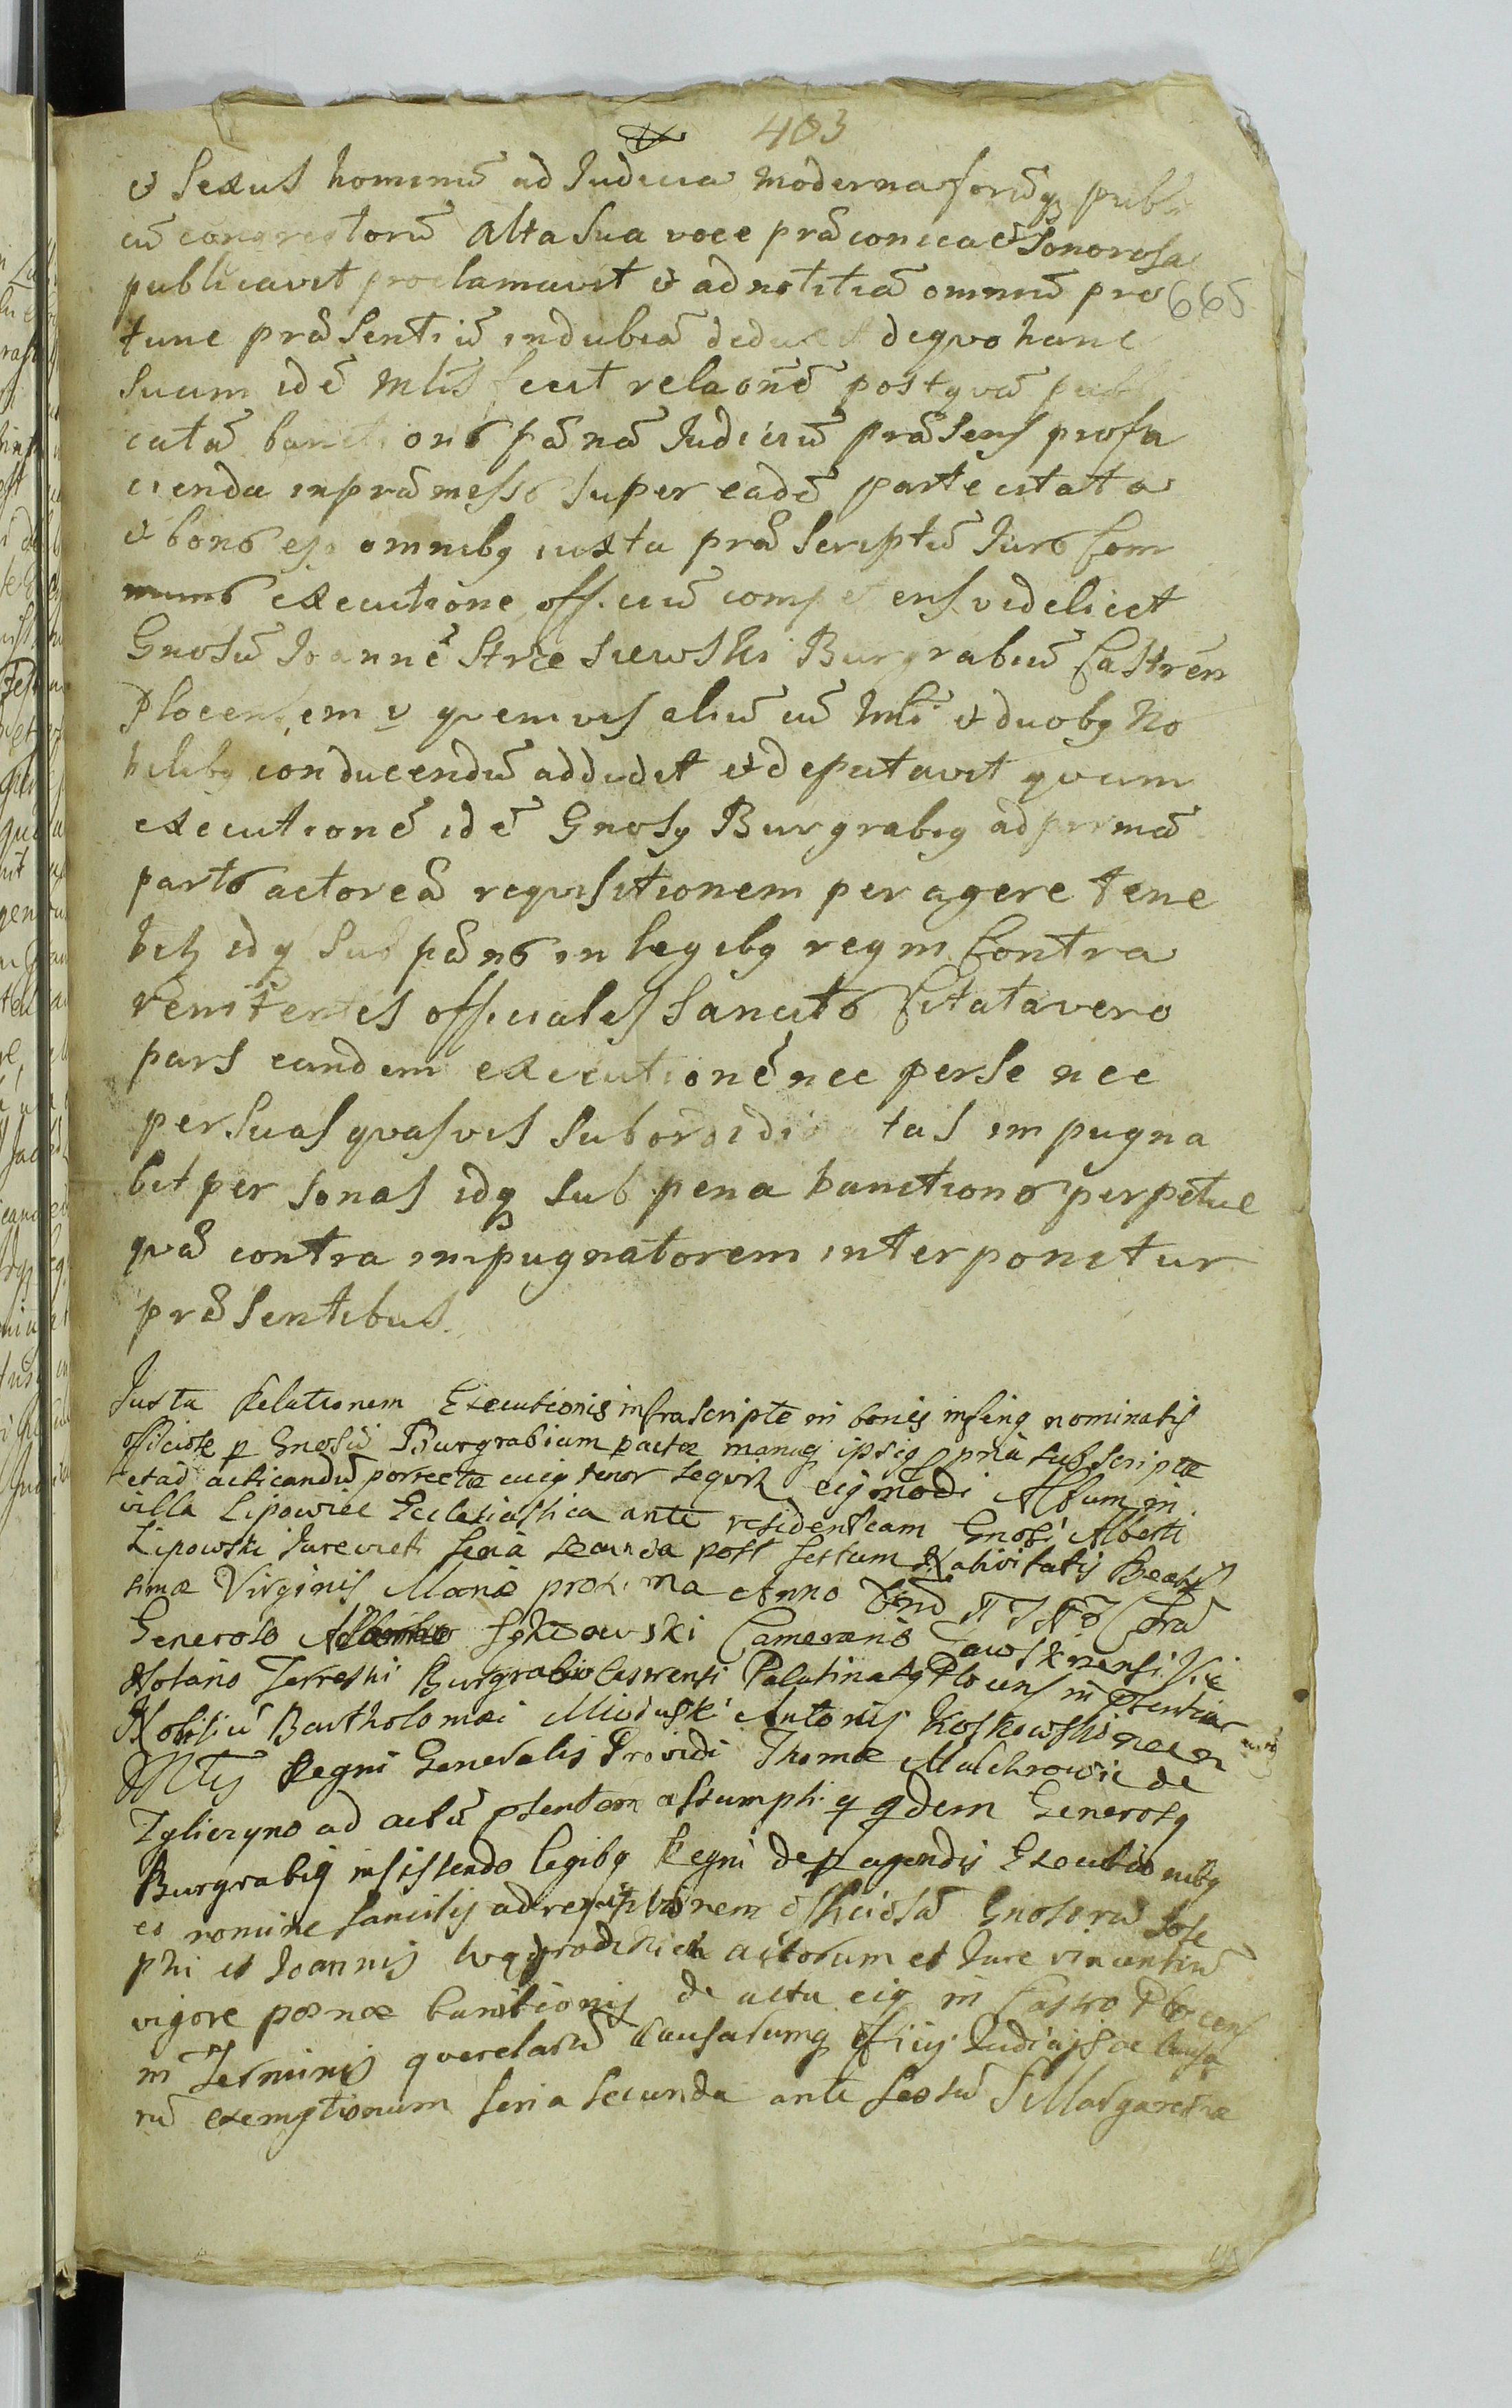 403
et Sexus hominū ad Iudicia moderna forūq publi
cū congregatorū Alta sua voce præconica et Sonorosa
publicavit proclamavit et ad notitiā omniū pro
665
tunc præsentiū indubiā deduxit de qvo hanc
suam idē Mlis fecit relaonē postqvā publi
catā bannitionis pænā Iudiciū præsens pro fa
cienda in præmisso super eadē parte citata
et bonis ejq omnibq iuxta præscriptū Iuris Com
munis executione officiū competens videlicet
Gnosū Joannē Strzeszewski Burgrabiū Castren
Plocensem v qvemvis aliū cū Mli et duobq No
bilibq conducendū addidit et deputavit qvam
executionē idē Gnosq Burgrabiq ad primā
partis actoreā reqvisitionem peragere tene
bitz idq sub pænis in legibq regni Contra
renitentes officiales sancitis Citata vero
pars eandem executionē nec per se nec
per suas qvasvis subordinatas impugna
bit personas idq sub pena bannitionis perpetue
qvā contra impugnatorem interponitur
præsentibus.
Juxta Relationem Executionis infrascriptæ in bonis inferiq nominatis
officiose p Gnosū Burgrabium pactæ manuq ipsiq ppria subscriptæ
et ad acticandū porrectæ cuiq tenor seqvitz eiqmodi Actum in
villa Lipowiec Ecclesiastica ante residentiam Gnosi Alberti
Lipowski Jurevicti feria secunda post festum Nativitatis Beatiss
simæ Virginis Mariæ proxima Anno Dni Corā
Generoso Camerario Zawskrzensi Vice
Notario Terrestri Burgrabio Castrensi Palatinatq Plocens in ptentia
Nobiliū Bartholomæi Mioduski Antonij Koskowski nec n
Mtis Regni Generalis Providi Thomæ Malchrowic de
Zglieczyno ad actū ptentem assumpti q qdem Generosq
Burgrabiq insistendo legibq Regni de pagendis Executionibq
eo nomine sancitis ad reqvisitionem officiosā Gnosorū Jose
phi et Joannis actorum et Jure vincentiū
vigore pænæ bannitionis de actu eiq in Castro Plocens
in Terminis qverelarū Causarumq Officij Judicijsce Causa
rū exemptionum feria secunda ante festū S Margarethæ